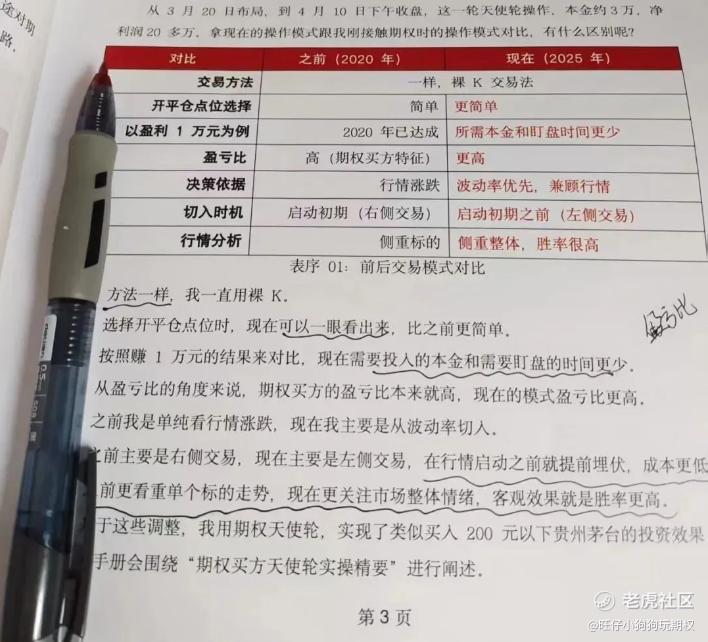 途对期
路.
从 3 月 20 日布局, 到 4 月 10 日下午收盘, 这一轮天使轮操作, 本金约3 万, 净
利润20 多万. 拿现在的操作模式跟我刚接触期权时的操作模式对比, 有什么区别呢?
对比 之前 (2020 年) 现在 (2025 年)
交易方法 一样, 裸 K 交易法
开平仓点位选择 简单 更简单
以盈利 1 万元为例 2020 年已达成 所需本金和盯盘时间更少
盈亏比 高 (期权买方特征) 更高
决策依据 行情涨跌 波动率优先, 兼顾行情
切入时机 启动初期 (右侧交易) 启动初期之前 (左侧交易)
行情分析 侧重标的 侧重整体, 胜率很高
表序 01: 前后交易模式对比
方法一样, 我一直用裸 K.
选择开平仓点位时, 现在可以一眼看出来, 比之前更简单.
盈亏比
按照赚 1 万元的结果来对比, 现在需要投入的本金和需要盯盘的时间更少.
从盈亏比的角度来说, 期权买方的盈亏比本来就高, 现在的模式盈亏比更高.
之前我是单纯看行情涨跌, 现在我主要是从波动率切入.
之前主要是右侧交易, 现在主要是左侧交易, 在行情启动之前就提前埋伏, 成本更低
前更看重单个标的走势, 现在更关注市场整体情绪, 客观效果就是胜率更高.
于这些调整, 我用期权天使轮, 实现了类似买入 200 元以下贵州茅台的投资效果
手册会围绕“期权买方天使轮实操精要”进行阐述.
第 3 页
老虎社区
@旺仔小狗狗玩期权